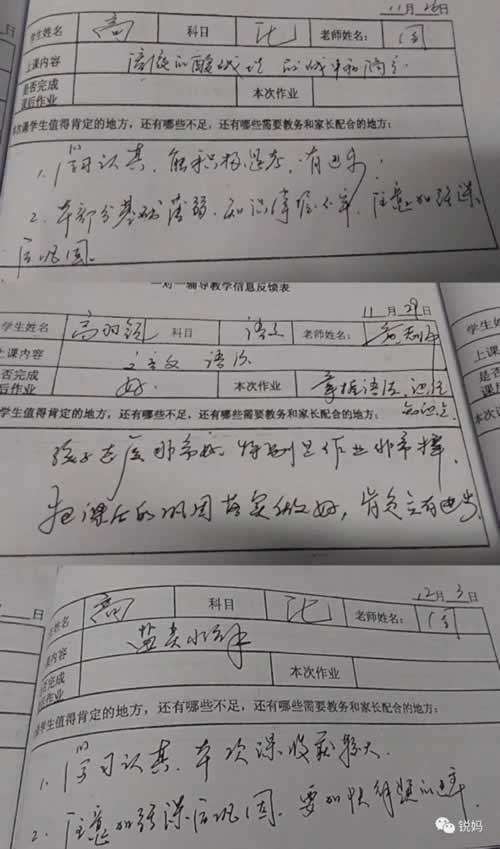 11月26日
学生姓名 高 科目 化 老师姓名： 闫
上课内容 溶液的酸碱性
是否完成课后作业 本次作业
本次课学生值得肯定的地方，还有哪些不足，还有哪些需要教务和家长配合的地方：
1. 学习认真，能积极思考，有进步。
2. 本部分基础薄弱，知识掌握不牢，注意加强课
后巩固。
一对一辅导教学信息反馈表
日 11月29日
学生姓名 科目 语文 老师姓名：
上课内容 文言文 语法
是否完成课后作业 好 本次作业 掌握语法，
知识点
学生值得肯定的地方，还有哪些不足，还有哪些需要教务和家长配合的地方：
孩子态度非常好，特别是作业非常棒，
把课后的巩固落实做好，肯定会有进步
学生姓
上课
日 12月3日
姓名 高 科目 化 老师姓名： 闫
课内容 盐类水解
否完成后作业 本次作业
学生值得肯定的地方，还有哪些不足，还有哪些需要教务和家长配合的地方：
1. 学习认真，本次课收获较大。
2. 注意加强课后巩固，要加快解题的速率
锐妈